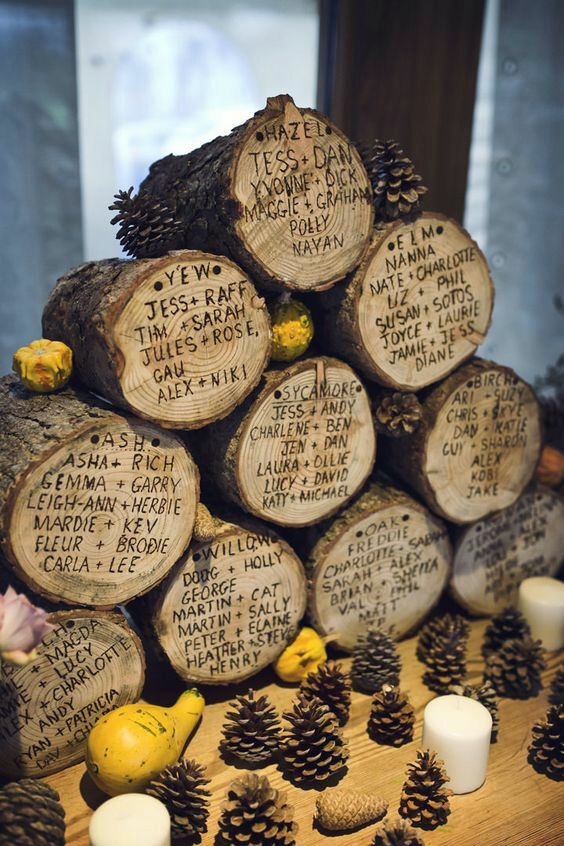 HAZEL
TESS + DAN
YVONNE + DICK
MAGGIE + GRAHAM
POLLY
NAYAN
YEW
JESS + RAFF
TIM + SARAH
JULES + ROSE,
GAU
ALEX + NIKI
ELM
NANNA
NATE + CHARLOTTE
LIZ + PHIL
SUSAN + SOTOS
JOYCE + LAURIE
JAMIE + JESS
DIANE
ASH
ASHA + RICH
GEMMA + GARRY
LEIGH-ANN + HERBIE
MARDIE + KEV
FLEUR + BRODIE
CARLA + LEE
SYCAMORE
JESS + ANDY
CHARLENE + BEN
JEN + DAN
LAURA + OLLIE
LUCY + DAVID
KATY + MICHAEL
BIRCH
ARI + SUZY
CHRIS + SKYE
DAN + KATIA
GUY + SHARON
ALEX
KOBI
JAKE
+ MAGDA
+ LUCY
ALEX + CHARLOTTE
ANDY
RYAN + PATRICIA
WILLOW
DOUG + HOLLY
GEORGE
MARTIN + CAT
MARTIN + SALLY
PETER + ELAINE
HEATHER + STEVE
HENRY
OAK
FREDDIE
CHARLOTTE +
SARAH + ALEX
BRIAN + SHEILA
VAL + PHIL
MATT